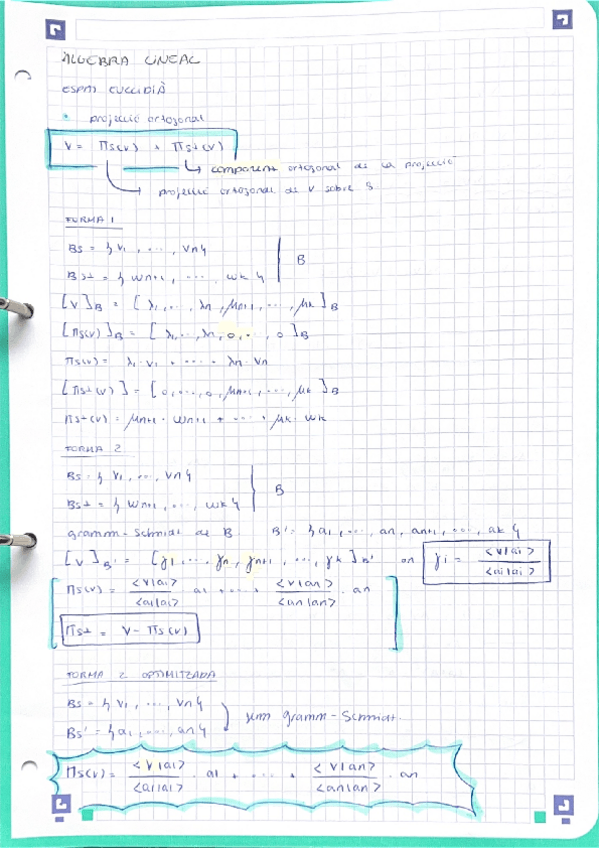 ÀLGEBRA LINEAL
ESPAI EUCLIDIÀ
• projecció ortogonal
V = Πs(v) + Πs⊥(v)
↳ component ortogonal de la projecció
↳ projecció ortogonal de V sobre S
FORMA 1
Bs = { v1, ..., vn }
Bs⊥ = { wn+1, ..., wk } | B
[v]B = [ λ1, ..., λn, μn+1, ..., μk ]B
[Πs(v)]B = [ λ1, ..., λn, 0, ..., 0 ]B
Πs(v) = λ1 · v1 + ... + λn · vn
[Πs⊥(v)] = [ 0, ..., 0, μn+1, ..., μk ]B
Πs⊥(v) = μn+1 · wn+1 + ... + μk · wk
FORMA 2
Bs = { v1, ..., vn }
Bs⊥ = { wn+1, ..., wk } B
gramm-Schmidt de B. B' = { a1, ..., an, an+1, ..., ak }
[v]B' = [ γ1, ..., γn, γn+1, ..., γk ]B' on γi = <v|ai> / <ai|ai>
Πs(v) = <v|a1> / <a1|a1> · a1 + ... + <v|an> / <an|an> · an
Πs⊥ = V - Πs(v)
FORMA 2 OPTIMITZADA
Bs = { v1, ..., vn }
Bs' = { a1, ..., an } gramm-Schmidt.
Πs(v) = <v|a1> / <a1|a1> · a1 + ... + <v|an> / <an|an> · an